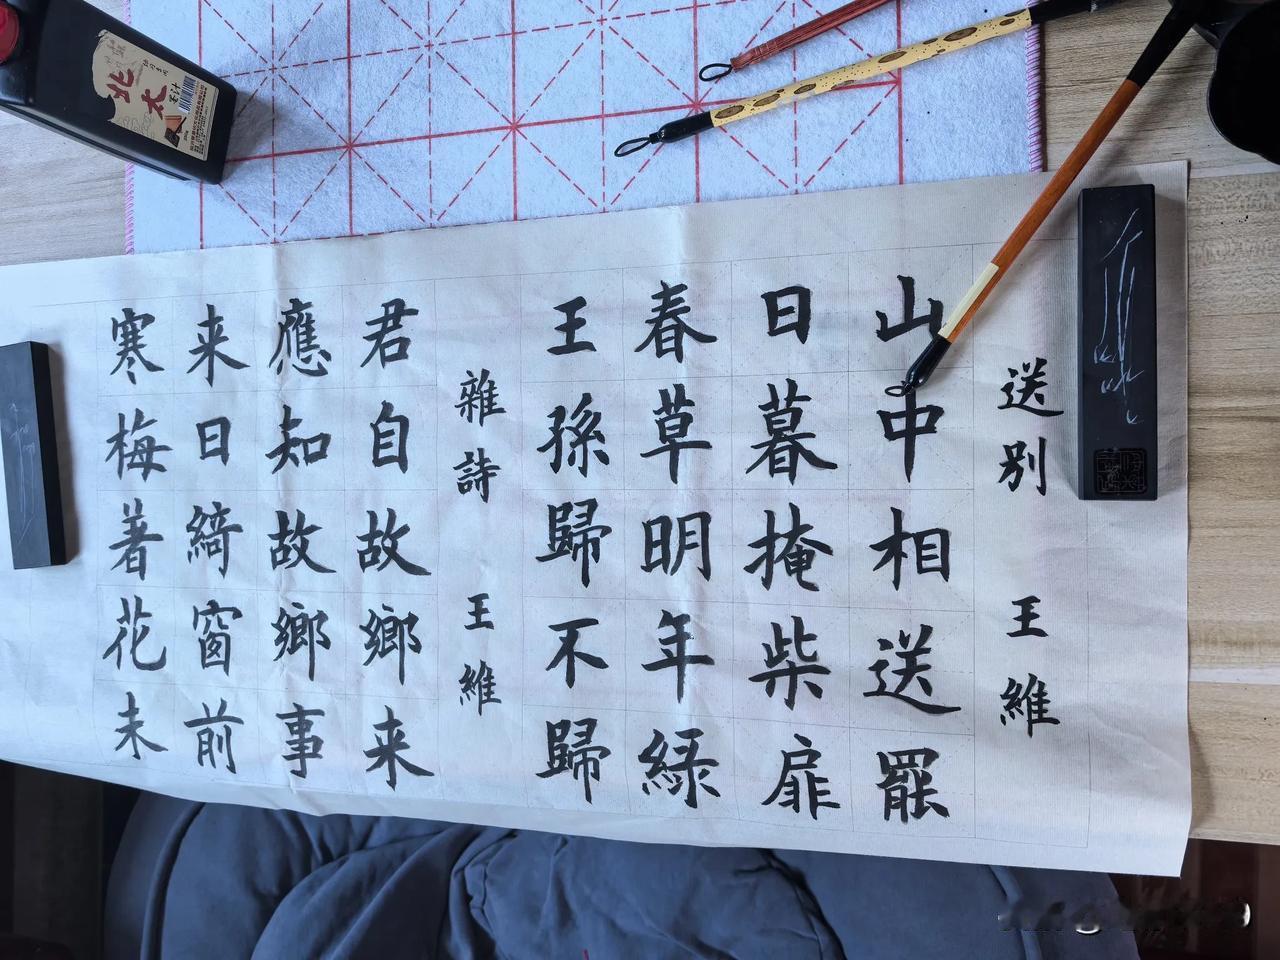 送别 王維
山中相送罷
日暮掩柴扉
春草明年緑
王孫歸不歸
雜詩 王維
君自故鄉来
應知故鄉事
来日綺窗前
寒梅著花未
北大
墨汁